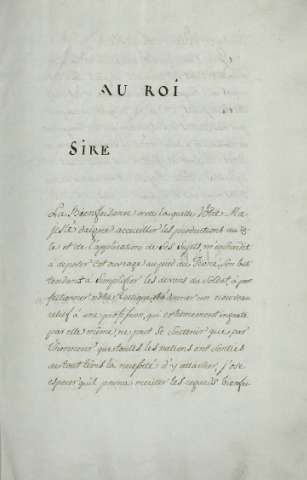 AU ROI
SIRE
La Bienfaisance avec laquelle Vôtre Ma-
jesté daigne accueillir les productions du zè-
le et de l'application de Ses Sujets, m'enhardit
à deposer cet ouvrage au pied du Trone, Son but
tendant à Simplifier les devoirs du Soldat, à per-
fectionner nôtre Tactique, et à donner un nouveau
relief à une profession, qui extremement ingrate
par elle même, ne peut se Soutenir que par
l'honneur que toutes les nations ont Senties
de tous tems la necessité d'y attacher, j'ose
esperer qu'il pourra meriter les regards bienfai-